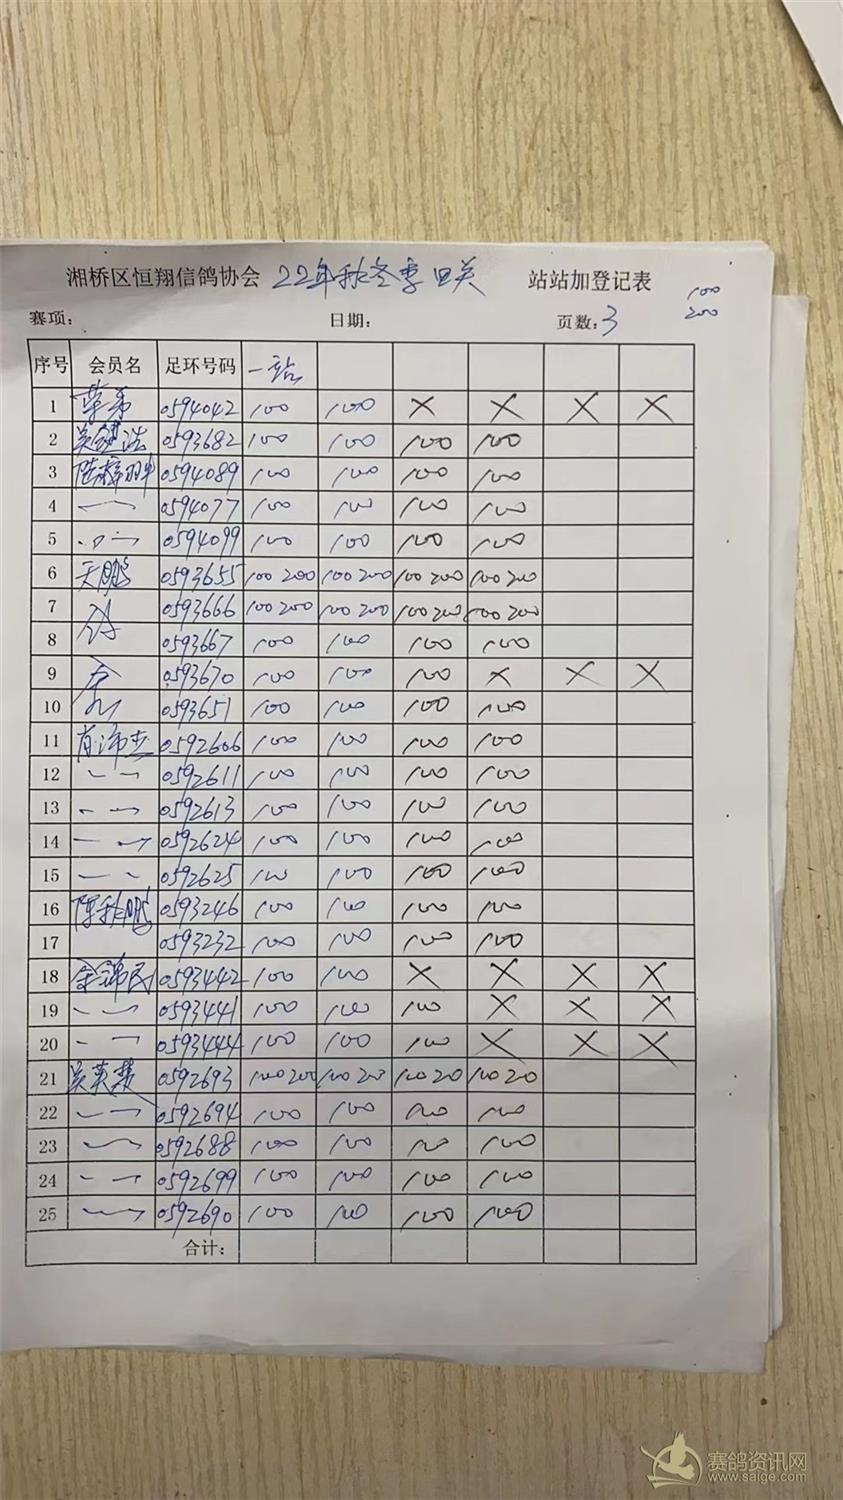 湘桥区恒翔信鸽协会 22年秋冬季四关 站站加登记表
100
200
赛项: 日期: 页数:3
序号 会员名 足环号码 一站
1 0594042 100 100 × × × ×
2 吴键浩 0593682 100 100 100 100
3 陆梓翀 0594089 100 100 100 100
4 〃 0594077 100 100 100 100
5 〃 0594099 100 100 100 100
6 天鹏 0593655 100 200 100 200 100 200 100 200
7 0593666 100 200 100 200 100 200 100 200
8 0593667 100 100 100 100
9 0593670 100 100 100 × × ×
10 0593651 100 100 100 100
11 肖沛杰 0592606 100 100 100 100
12 〃 0592611 100 100 100 100
13 〃 0592613 100 100 100 100
14 〃 0592624 100 100 100 100
15 〃 0592625 100 100 100 100
16 陈秋鹏 0593246 100 100 100 100
17 0593232 100 100 100 100
18 余锦民 0593442 100 100 × × × ×
19 〃 0593441 100 100 100 × × ×
20 〃 0593444 100 100 100 × × ×
21 吴英楚 0592693 100 200 100 20 100 20 100 20
22 〃 0592694 100 100 100 100
23 〃 0592688 100 100 100 100
24 〃 0592699 100 100 100 100
25 〃 0592690 100 100 100 100
合计:
赛鸽资讯网
www.saige.com